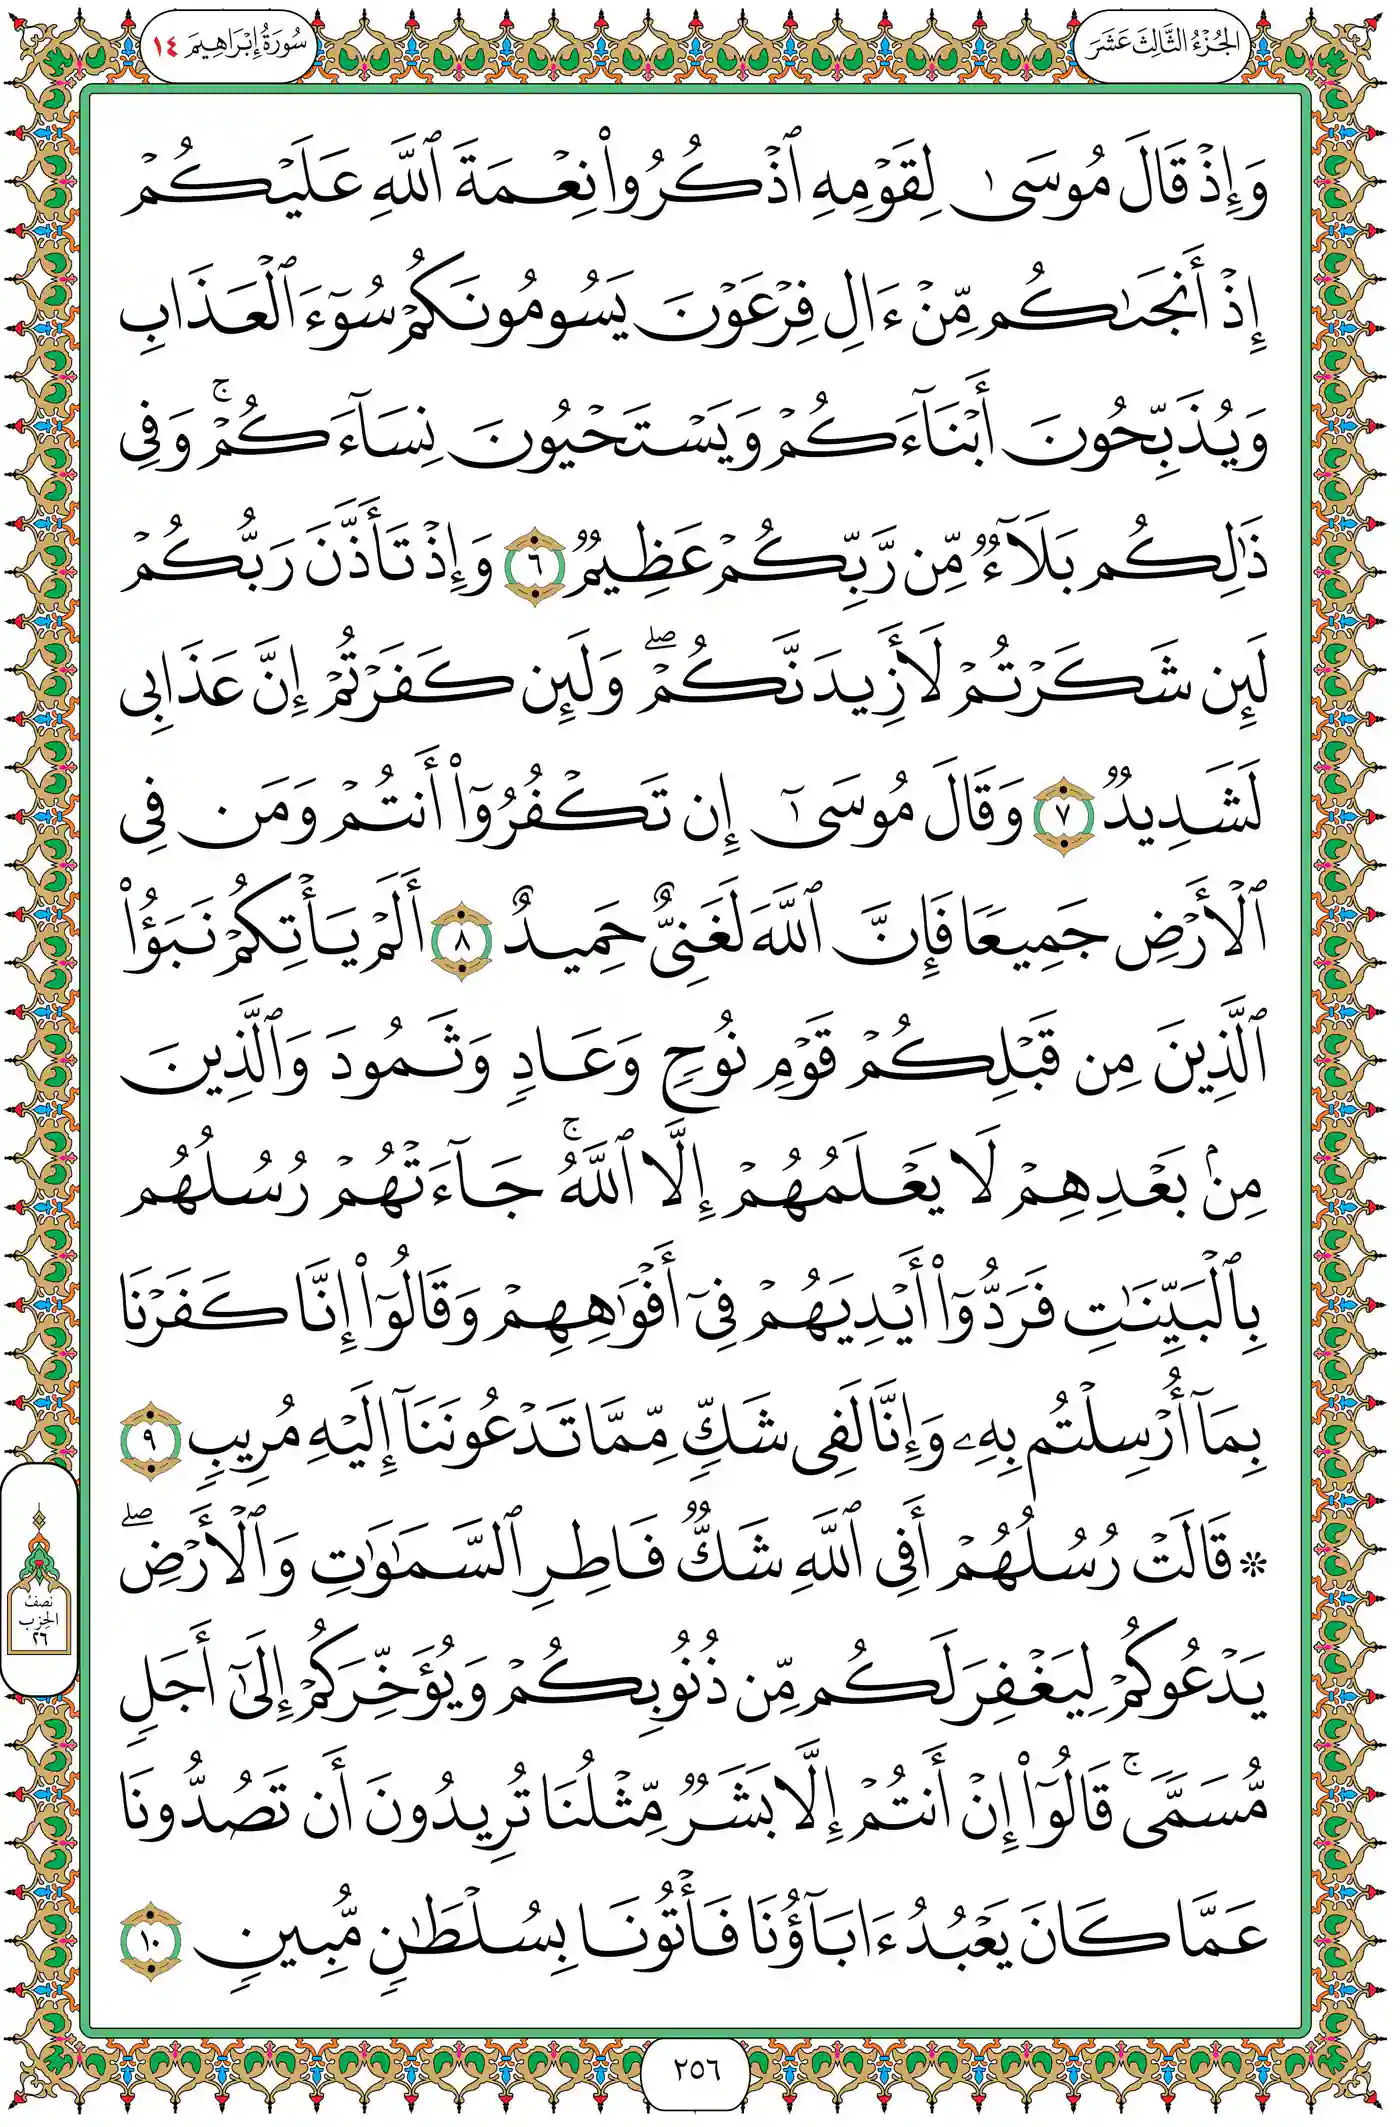 الجُزْءُ الثَّالِثَ عَشَرَ
سُورَةُ إِبْرَاهِيمَ ١٤
وَإِذۡ قَالَ مُوسَىٰ لِقَوۡمِهِ ٱذۡكُرُواْ نِعۡمَةَ ٱللَّهِ عَلَيۡكُمۡ
إِذۡ أَنجَىٰكُم مِّنۡ ءَالِ فِرۡعَوۡنَ يَسُومُونَكُمۡ سُوٓءَ ٱلۡعَذَابِ
وَيُذَبِّحُونَ أَبۡنَآءَكُمۡ وَيَسۡتَحۡيُونَ نِسَآءَكُمۡۚ وَفِي
ذَٰلِكُم بَلَآءٞ مِّن رَّبِّكُمۡ عَظِيمٞ ٦ وَإِذۡ تَأَذَّنَ رَبُّكُمۡ
لَئِن شَكَرۡتُمۡ لَأَزِيدَنَّكُمۡۖ وَلَئِن كَفَرۡتُمۡ إِنَّ عَذَابِي
لَشَدِيدٞ ٧ وَقَالَ مُوسَىٰٓ إِن تَكۡفُرُوٓاْ أَنتُمۡ وَمَن فِي
ٱلۡأَرۡضِ جَمِيعٗا فَإِنَّ ٱللَّهَ لَغَنِيٌّ حَمِيدٌ ٨ أَلَمۡ يَأۡتِكُمۡ نَبَؤُاْ
ٱلَّذِينَ مِن قَبۡلِكُمۡ قَوۡمِ نُوحٖ وَعَادٖ وَثَمُودَ وَٱلَّذِينَ
مِنۢ بَعۡدِهِمۡ لَا يَعۡلَمُهُمۡ إِلَّا ٱللَّهُۚ جَآءَتۡهُمۡ رُسُلُهُم
بِٱلۡبَيِّنَٰتِ فَرَدُّوٓاْ أَيۡدِيَهُمۡ فِيٓ أَفۡوَٰهِهِمۡ وَقَالُوٓاْ إِنَّا كَفَرۡنَا
بِمَآ أُرۡسِلۡتُم بِهِۦ وَإِنَّا لَفِي شَكّٖ مِّمَّا تَدۡعُونَنَآ إِلَيۡهِ مُرِيبٖ ٩
۞ قَالَتۡ رُسُلُهُمۡ أَفِي ٱللَّهِ شَكّٞ فَاطِرِ ٱلسَّمَٰوَٰتِ وَٱلۡأَرۡضِۖ
يَدۡعُوكُمۡ لِيَغۡفِرَ لَكُم مِّن ذُنُوبِكُمۡ وَيُؤَخِّرَكُمۡ إِلَىٰٓ أَجَلٖ
مُّسَمّٗىۚ قَالُوٓاْ إِنۡ أَنتُمۡ إِلَّا بَشَرٞ مِّثۡلُنَا تُرِيدُونَ أَن تَصُدُّونَا
عَمَّا كَانَ يَعۡبُدُ ءَابَآؤُنَا فَأۡتُونَا بِسُلۡطَٰنٖ مُّبِينٖ ١٠
نصف
الحزب
٢٦
٢٥٦